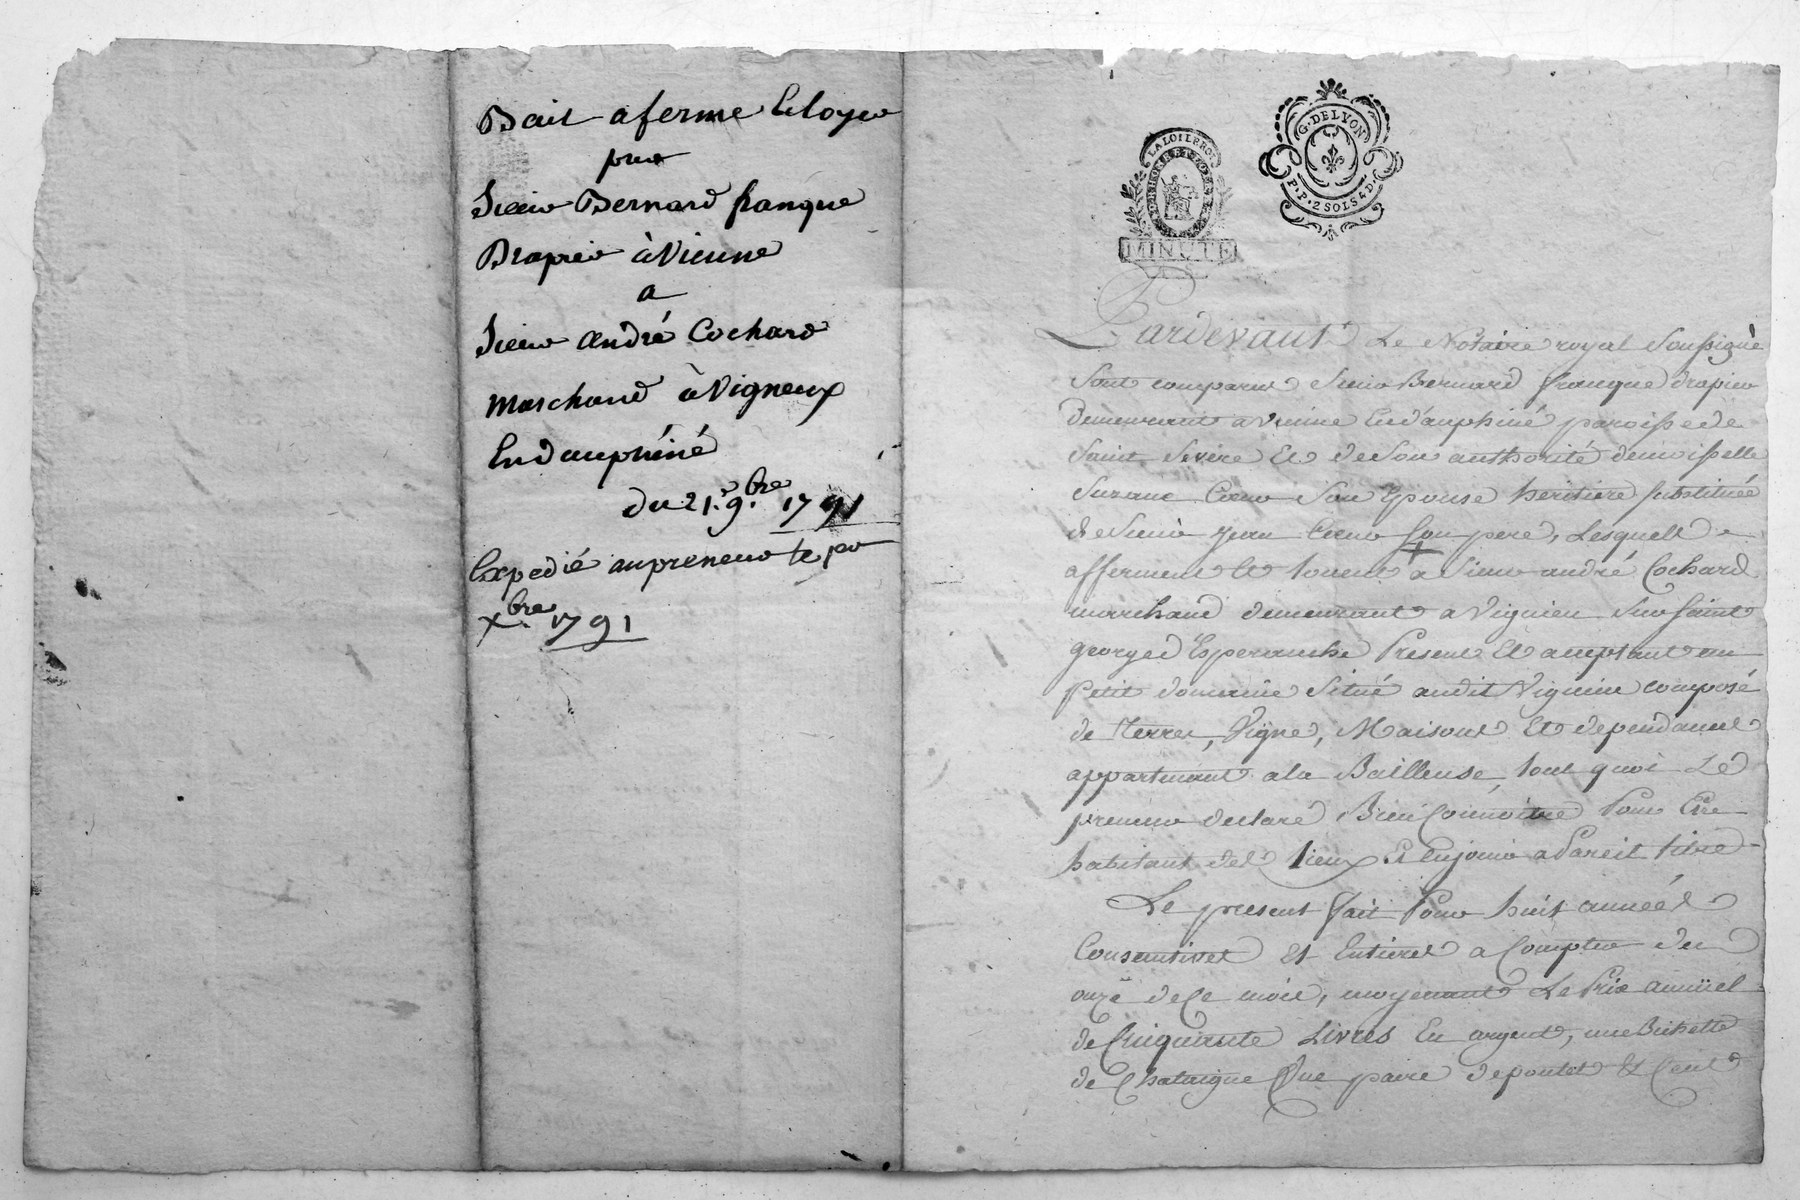 Bail a ferme Et loyer
pour
Sieur Bernard franque
Drapier à Vienne
a
Sieur André Cochard
Marchand à Vigneux
En dauphiné
du 21.e 9.bre 1791
Expedié au preneur le per
x.bre 1791
LA LOI LE ROI
MINUTE
G. DE LYON
P.P. 2 SOLS 4 D.
Pardevant Le Notaire royal Soussigné
Sont comparus Sieur Bernard franque drapier
demeurant a vienne En dauphiné paroisse de
Saint Sévère Et de Son authorité demoisselle
Suzane Son Epouse heritiere substituée
de Sieur Jean Son pere, Lesquels
afferment Et louent a Sieur andré Cochard
marchand demeurant a Vignieu Sur Saint
george d'Esperanche Present Et acceptant un
Petit domaine Situé audit Vignieu composé
de Terres, Vigne, Maisons Et dependances
appartenant a la Bailleuse, tout quoi Le
preneur declare Bien Connoitre Pour Etre
habitant des lieux Et En jouir a Pareil titre
Le present fait Pour huit années
Consecutives Et Entieres a Compter du
onze de Ce mois, moyenant Le Prix annüel
de Cinquante Livres En argent, une Bichette
de Chataigne Une paire de poulets Et Cent